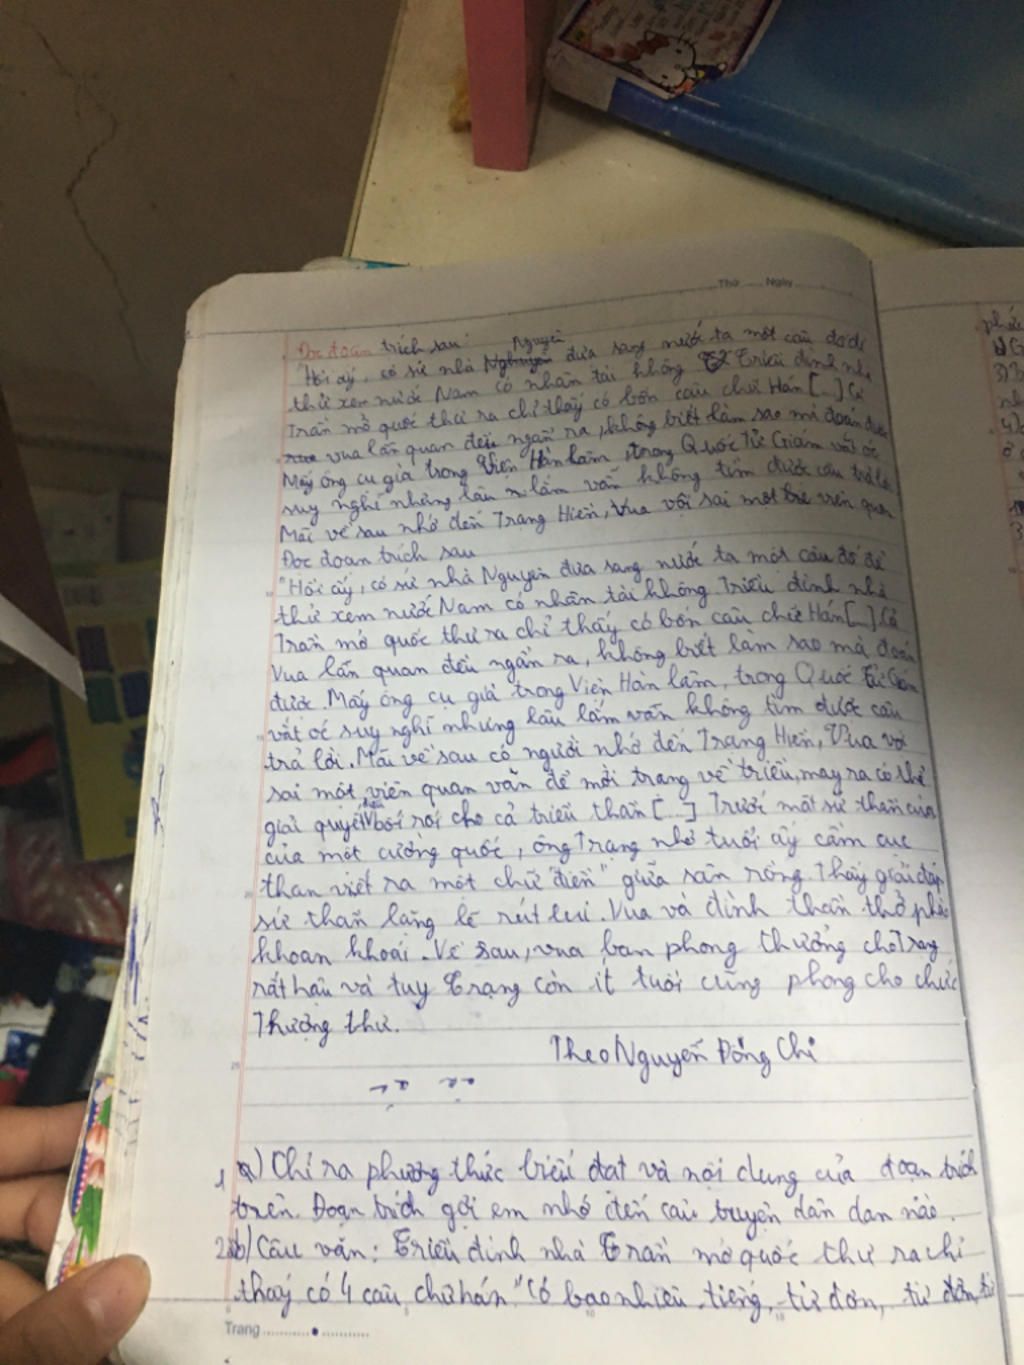 Thứ Ngày
Đọc đoạn trích sau: Nguyên
"Hồi ấy, có sứ nhà đưa sang nước ta một câu đố để
thử xem nước Nam có nhân tài không Triều đình nhà
Trần mở quốc thư ra chỉ thấy có bốn câu chữ Hán [...] Cả
vua lẫn quan đều ngẩn ra, không biết làm sao mà đoán được
Mấy ông cụ già trong Viện Hàn lâm, trong Quốc Tử Giám vắt óc
suy nghĩ nhưng lâu lắm vẫn không tìm được câu trả lời
Mãi về sau nhớ đến Trạng Hiền, Vua vội sai một viên quan
Đọc đoạn trích sau
"Hồi ấy, có sứ nhà Nguyên đưa sang nước ta một câu đố để
thử xem nước Nam có nhân tài không. Triều đình nhà
Trần mở quốc thư ra chỉ thấy có bốn câu chữ Hán [...]. Cả
Vua lẫn quan đều ngẩn ra, không biết làm sao mà đoán
được. Mấy ông cụ già trong Viện Hàn lâm, trong Quốc Tử Giám
vắt óc suy nghĩ nhưng lâu lắm vẫn không tìm được câu
trả lời. Mãi về sau có người nhớ đến Trạng Hiền, Vua vội
sai một viên quan văn để mời trạng về triều, may ra có thể
giải quyết bối rối cho cả triều thần [...] Trước mặt sứ thần của
của một cường quốc, ông Trạng nhỏ tuổi ấy cầm cục
than viết ra một chữ "điền" giữa sân rồng. Thấy giải đáp
sứ thần lặng lẽ rút lui. Vua và đình thần thở phào
khoan khoái. Về sau, vua ban phong thưởng cho Trạng
rất hậu và tuy Trạng còn ít tuổi cũng phong cho chức
Thượng thư.
Theo Nguyễn Đổng Chi
1 a) Chỉ ra phương thức biểu đạt và nội dung của đoạn trích
trên. Đoạn trích gợi em nhớ đến câu truyện dân dan nào.
2 b) Câu văn: Triều đình nhà Trần mở quốc thư ra chỉ
thấy có 4 câu chữ hán "Có bao nhiêu tiếng, từ đơn, từ đơn, từ
Trang